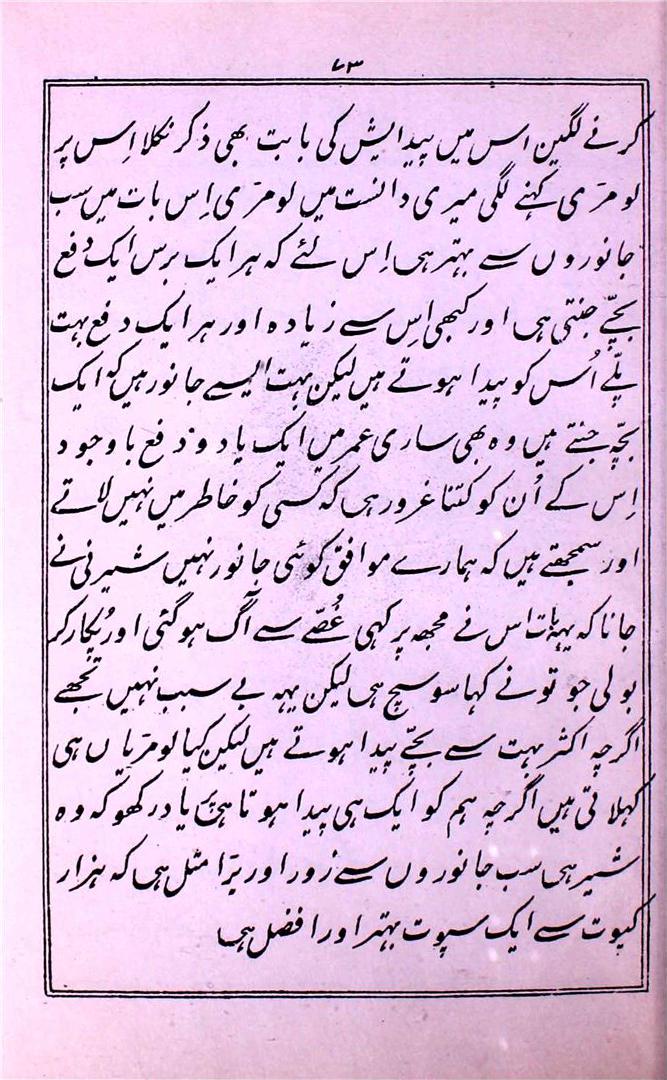 ۷۳
کرنے لگین اس میں پیدایش کی بابت بھی ذکر نکلا اِس پر
لومڑی کہنے لگی میری دانست میں لومڑی اِس بات میں سب
جانوروں سے بہتر ہی اِس لئے کہ ہر ایک برس ایک دفع
بچّے جنتی ہی اور کبھی اِس سے زیادہ اور ہر ایک دفع بہت
پلّے اُس کو پیدا ہوتے ہیں لیکن بہت ایسے جانور ہیں کہ ایک
بچّہ جنتے ہیں وہ بھی ساری عمر میں ایک یا دو دفع باوجود
اِس کے اُن کو کتنا غرور ہی کہ کسی کو خاطر میں نہیں لاتے
اور سمجھتے ہیں کہ ہمارے موافق کوئی جانور نہیں شیرنی نے
جانا کہ یہہ بات اس نے مجھہ پر کہی غُصّے سے آگ ہو گئی اور پُکار کر
بولی جو تو نے کہا سو سچ ہی لیکن یہہ بے سبب نہیں تجھے
اگرچہ اکثر بہت سے بچّے پیدا ہوتے ہیں لیکن کیا لومڑیاں ہی
کہلاتی ہیں اگرچہ ہم کو ایک ہی پیدا ہوتا ہی پر یاد رکھو کہ وہ
شیر ہی سب جانوروں سے زور اور بڑا مثل ہی کہ ہزار
کپوت سے ایک سپوت بہتر اور افضل ہی